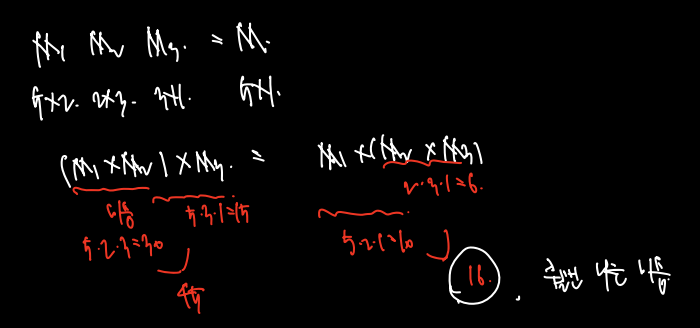 M1 M2 M3. = M.
5×2. 2×3. 3×1. 5×1.
(M1 × M2) × M3. = M1 × (M2 × M3)
곱 5·3·1=15 2·3·1=6.
5·2·3=30 5·2·1=10
45 16.